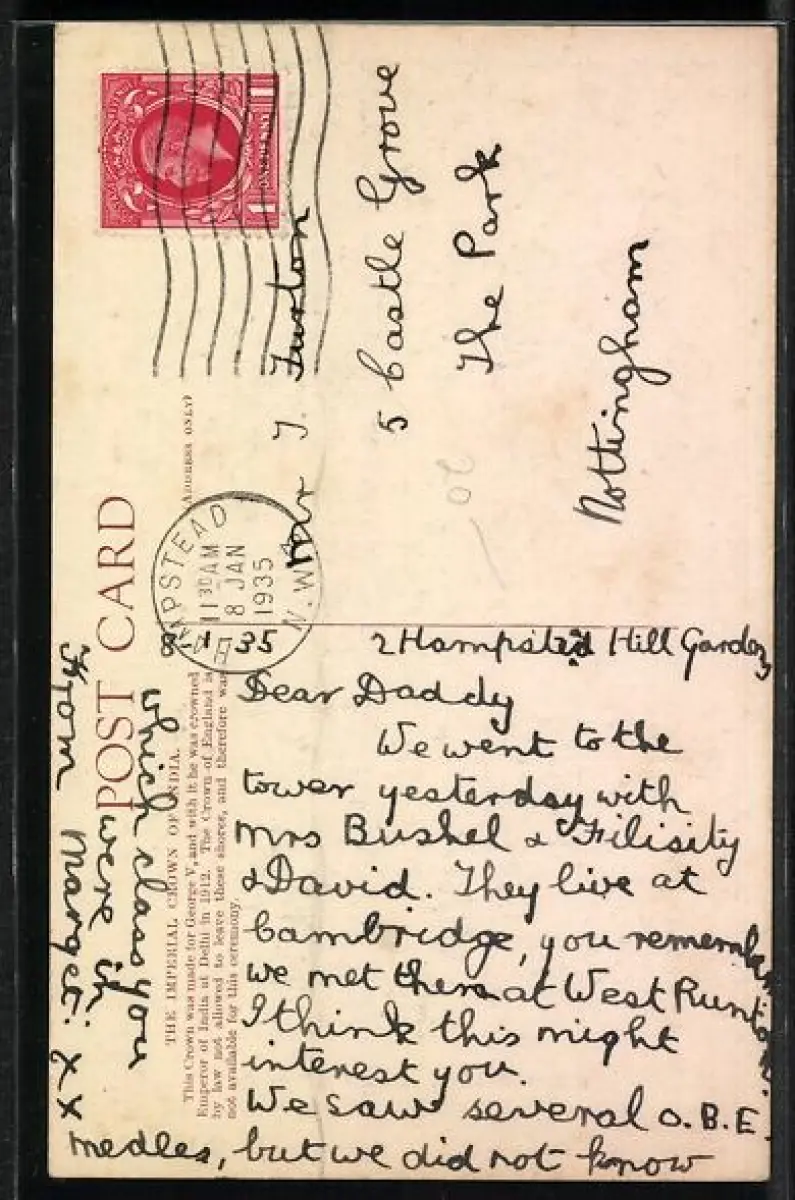 POST CARD
ADDRESS ONLY)
THE IMPERIAL CROWN OF INDIA.
This Crown was made for George V, and with it he was crowned
Emperor of India at Delhi in 1912. The Crown of England is
by law not allowed to leave these shores, and therefore was
not available for this ceremony.
1 1
HAMPSTEAD
11 30 AM
8 JAN
1935
N.W.
Mr J. Turton
5 Castle Grove
The Park
Nottingham
20
8-1 35
2 Hampstead Hill Gardens
Dear Daddy
We went to the
tower yesterday with
Mrs Bushel & Filisity
& David. They live at
Cambridge, you remember
we met them at West Runton.
I think this might
interest you.
We saw several O.B.E.
medles, but we did not know
which class you
were in
From Marget: x x